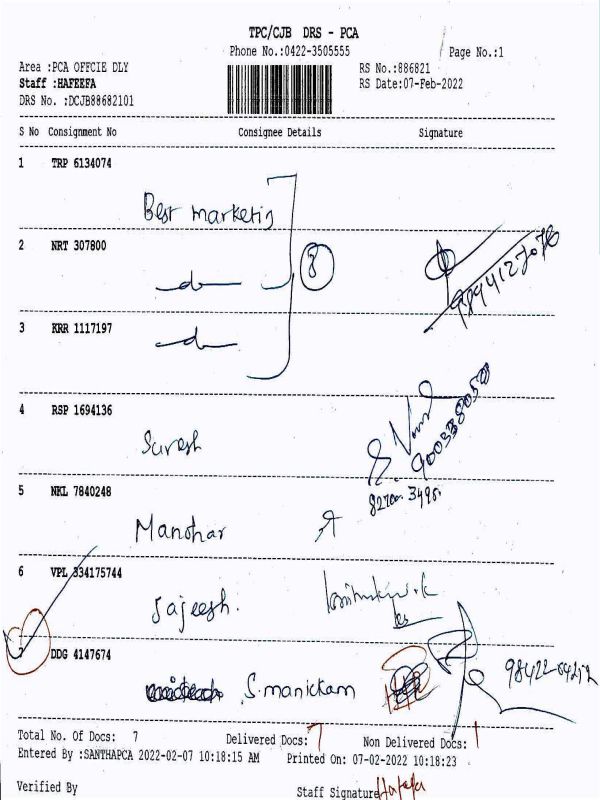 TPC/CJB DRS - PCA
Phone No.:0422-3505555
Page No.:1
Area :PCA OFFCIE DLY
RS No.:886821
Staff :HAFEEFA
RS Date:07-Feb-2022
DRS No. :DCJB88682101
S No Consignment No Consignee Details Signature
1 TRP 6134074
Best marketig
2 NRT 307800
3
9894127076
3 KRR 1117197
4 RSP 1694136
Suresh
5 NKL 7840248
Manohar
6 VPL 334175744
Sajeesh.
7 DDG 4147674
S.manickam
Total No. Of Docs: 7 Delivered Docs: 7 Non Delivered Docs:
Entered By :SANTHAPCA 2022-02-07 10:18:15 AM Printed On: 07-02-2022 10:18:23
Verified By
Staff Signature Hafefa